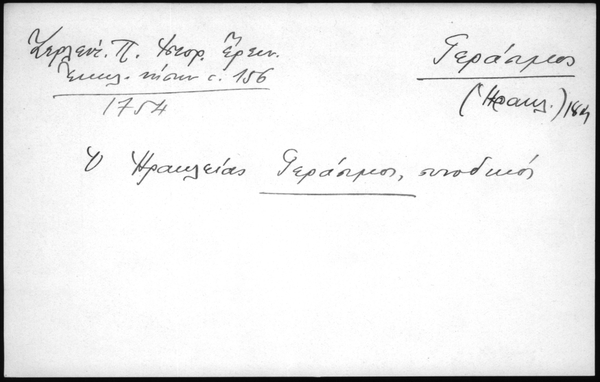 Ζερλέντ. Π. Ἱστορ. Ἔρευν.
Ἐκκλ. νήσων σ. 156
1754
Γεράσιμος
(Ἡρακλ.)
Ὁ Ἡρακλείας Γεράσιμος, συνοδικός